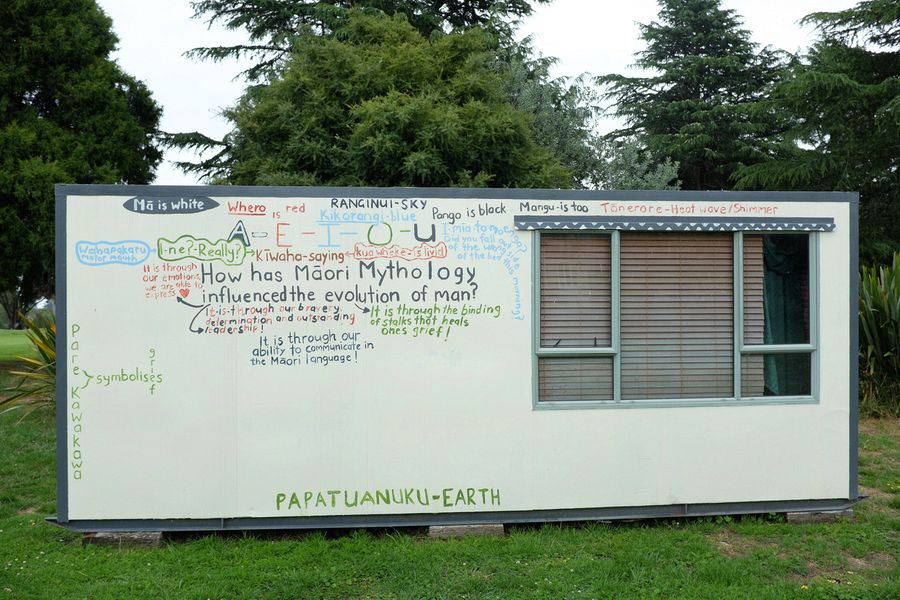 Mā is white
Whero is red
RANGINUI-SKY
Kikorangi-blue
Pango is black
Mangu-is too
Tānerore-Heat wave/Shimmer
A-E-I-O-U
I-mia to moenga?
Did you fall out
of the wrong side
of the bed this morning?
Wahapakaru
motor mouth
I-ne?-Really?
Kīwaha-saying
kua where-is livid
It is through
our emotions
we are able to
express
How has Māori Mythology
influenced the evolution of man?
It-is-through our bravery,
determination and outstanding
leadership!
It is through the binding
of stalks that heals
ones grief!
It is through our
ability to communicate in
the Māori language!
Pare Kawakawa
symbolises
grief
PAPATUANUKU-EARTH